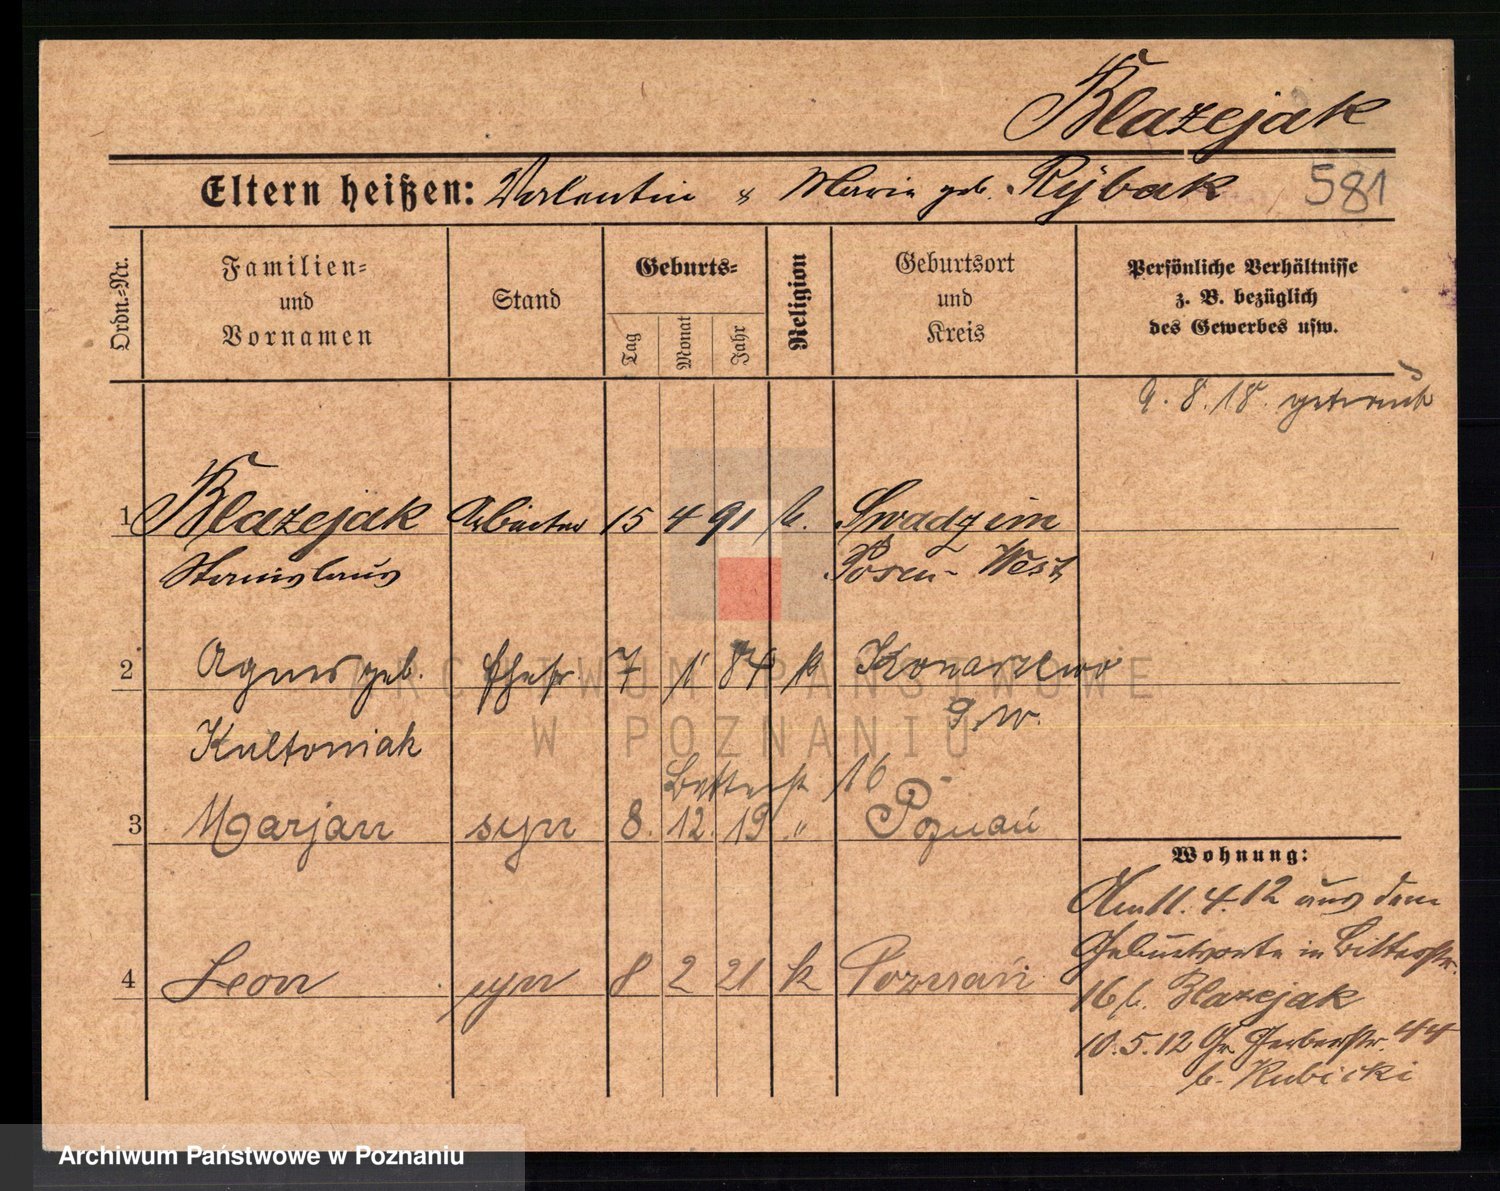 Blazejak
Eltern heißen: Valentin & Maria geb. Rybak 581
Ordn.-Nr.
Familien-
und
Vornamen
Stand
Geburts-
Tag
Monat
Jahr
Religion
Geburtsort
und
Kreis
Persönliche Verhältnisse
z. B. bezüglich
des Gewerbes usw.
9. 8. 18. getraut
1 Blazejak Arbeiter 15 4 91 k. Swadzim
Stanislaus Posen-West
2 Agnes geb. Ehefr 7 1 84 k Konarzewo
Kultoniak P. W.
Bitterst 16
3 Marjan syn 8. 12. 19 " Poznań
4 Leon syn 8 2 21 k Poznań
Wohnung:
Am 11. 4. 12 aus dem
Geburtsorte in Bitterstr.
16 b. Blazejak
10. 5. 12 Gr. Gerberstr. 44
b. Rubicki
ARCHIWUM PAŃSTWOWE
W POZNANIU
Archiwum Państwowe w Poznaniu